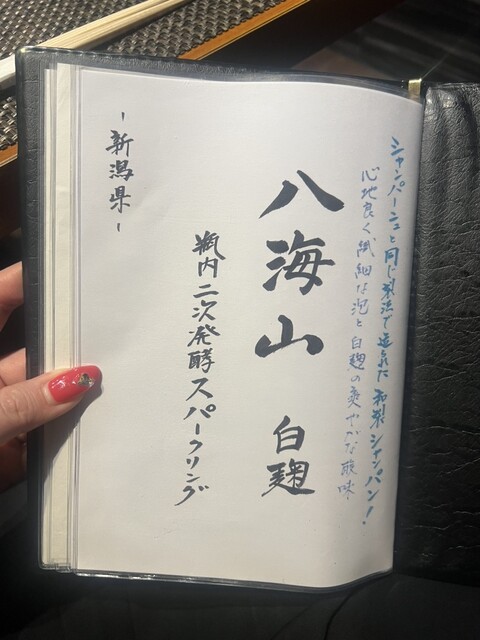 シャンパーニュと同じ製法で造られた和製シャンパン!
心地良く繊細な泡と白麹の爽やかな酸味
八海山 白麹
瓶内二次発酵スパークリング
-新潟県-